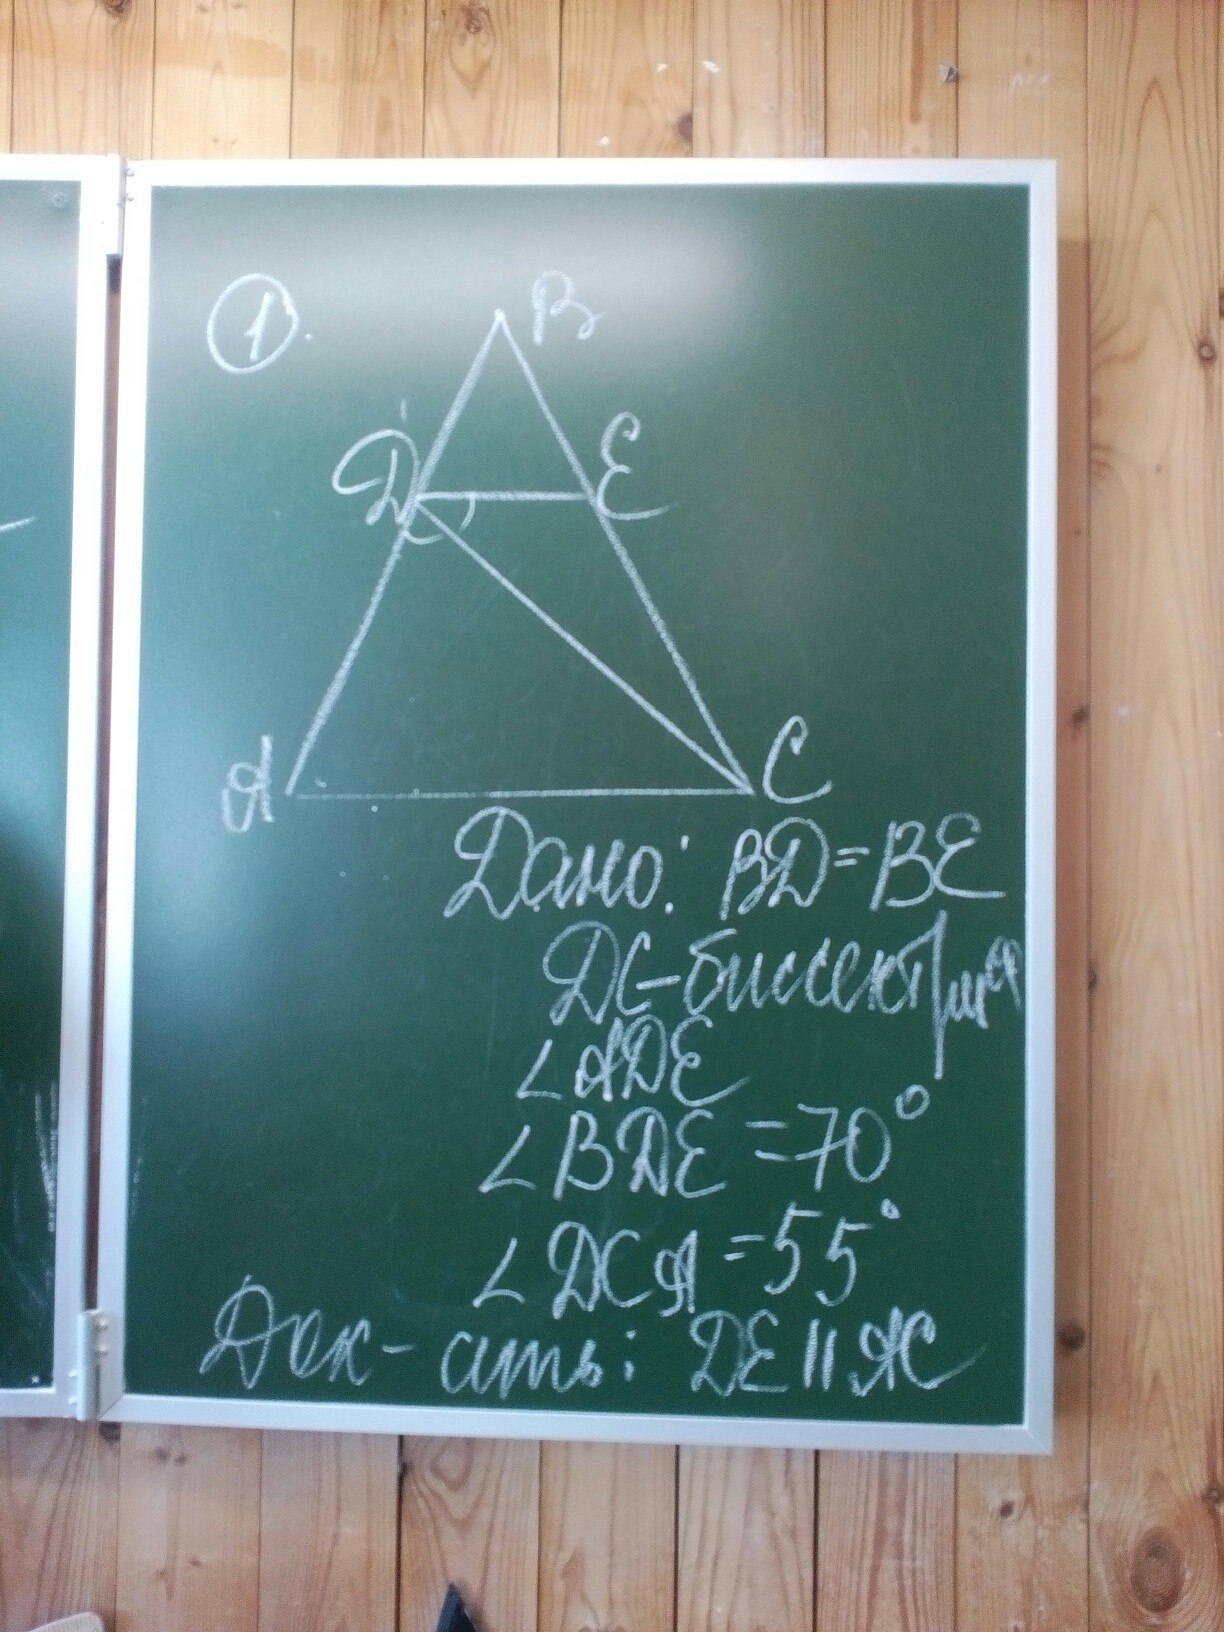 1.
B
D
E
A
C
Дано: BD=BE
DC-биссектриса
∠ADE
∠BDE =70°
∠DCA =55°
Док-ать: DE||AC